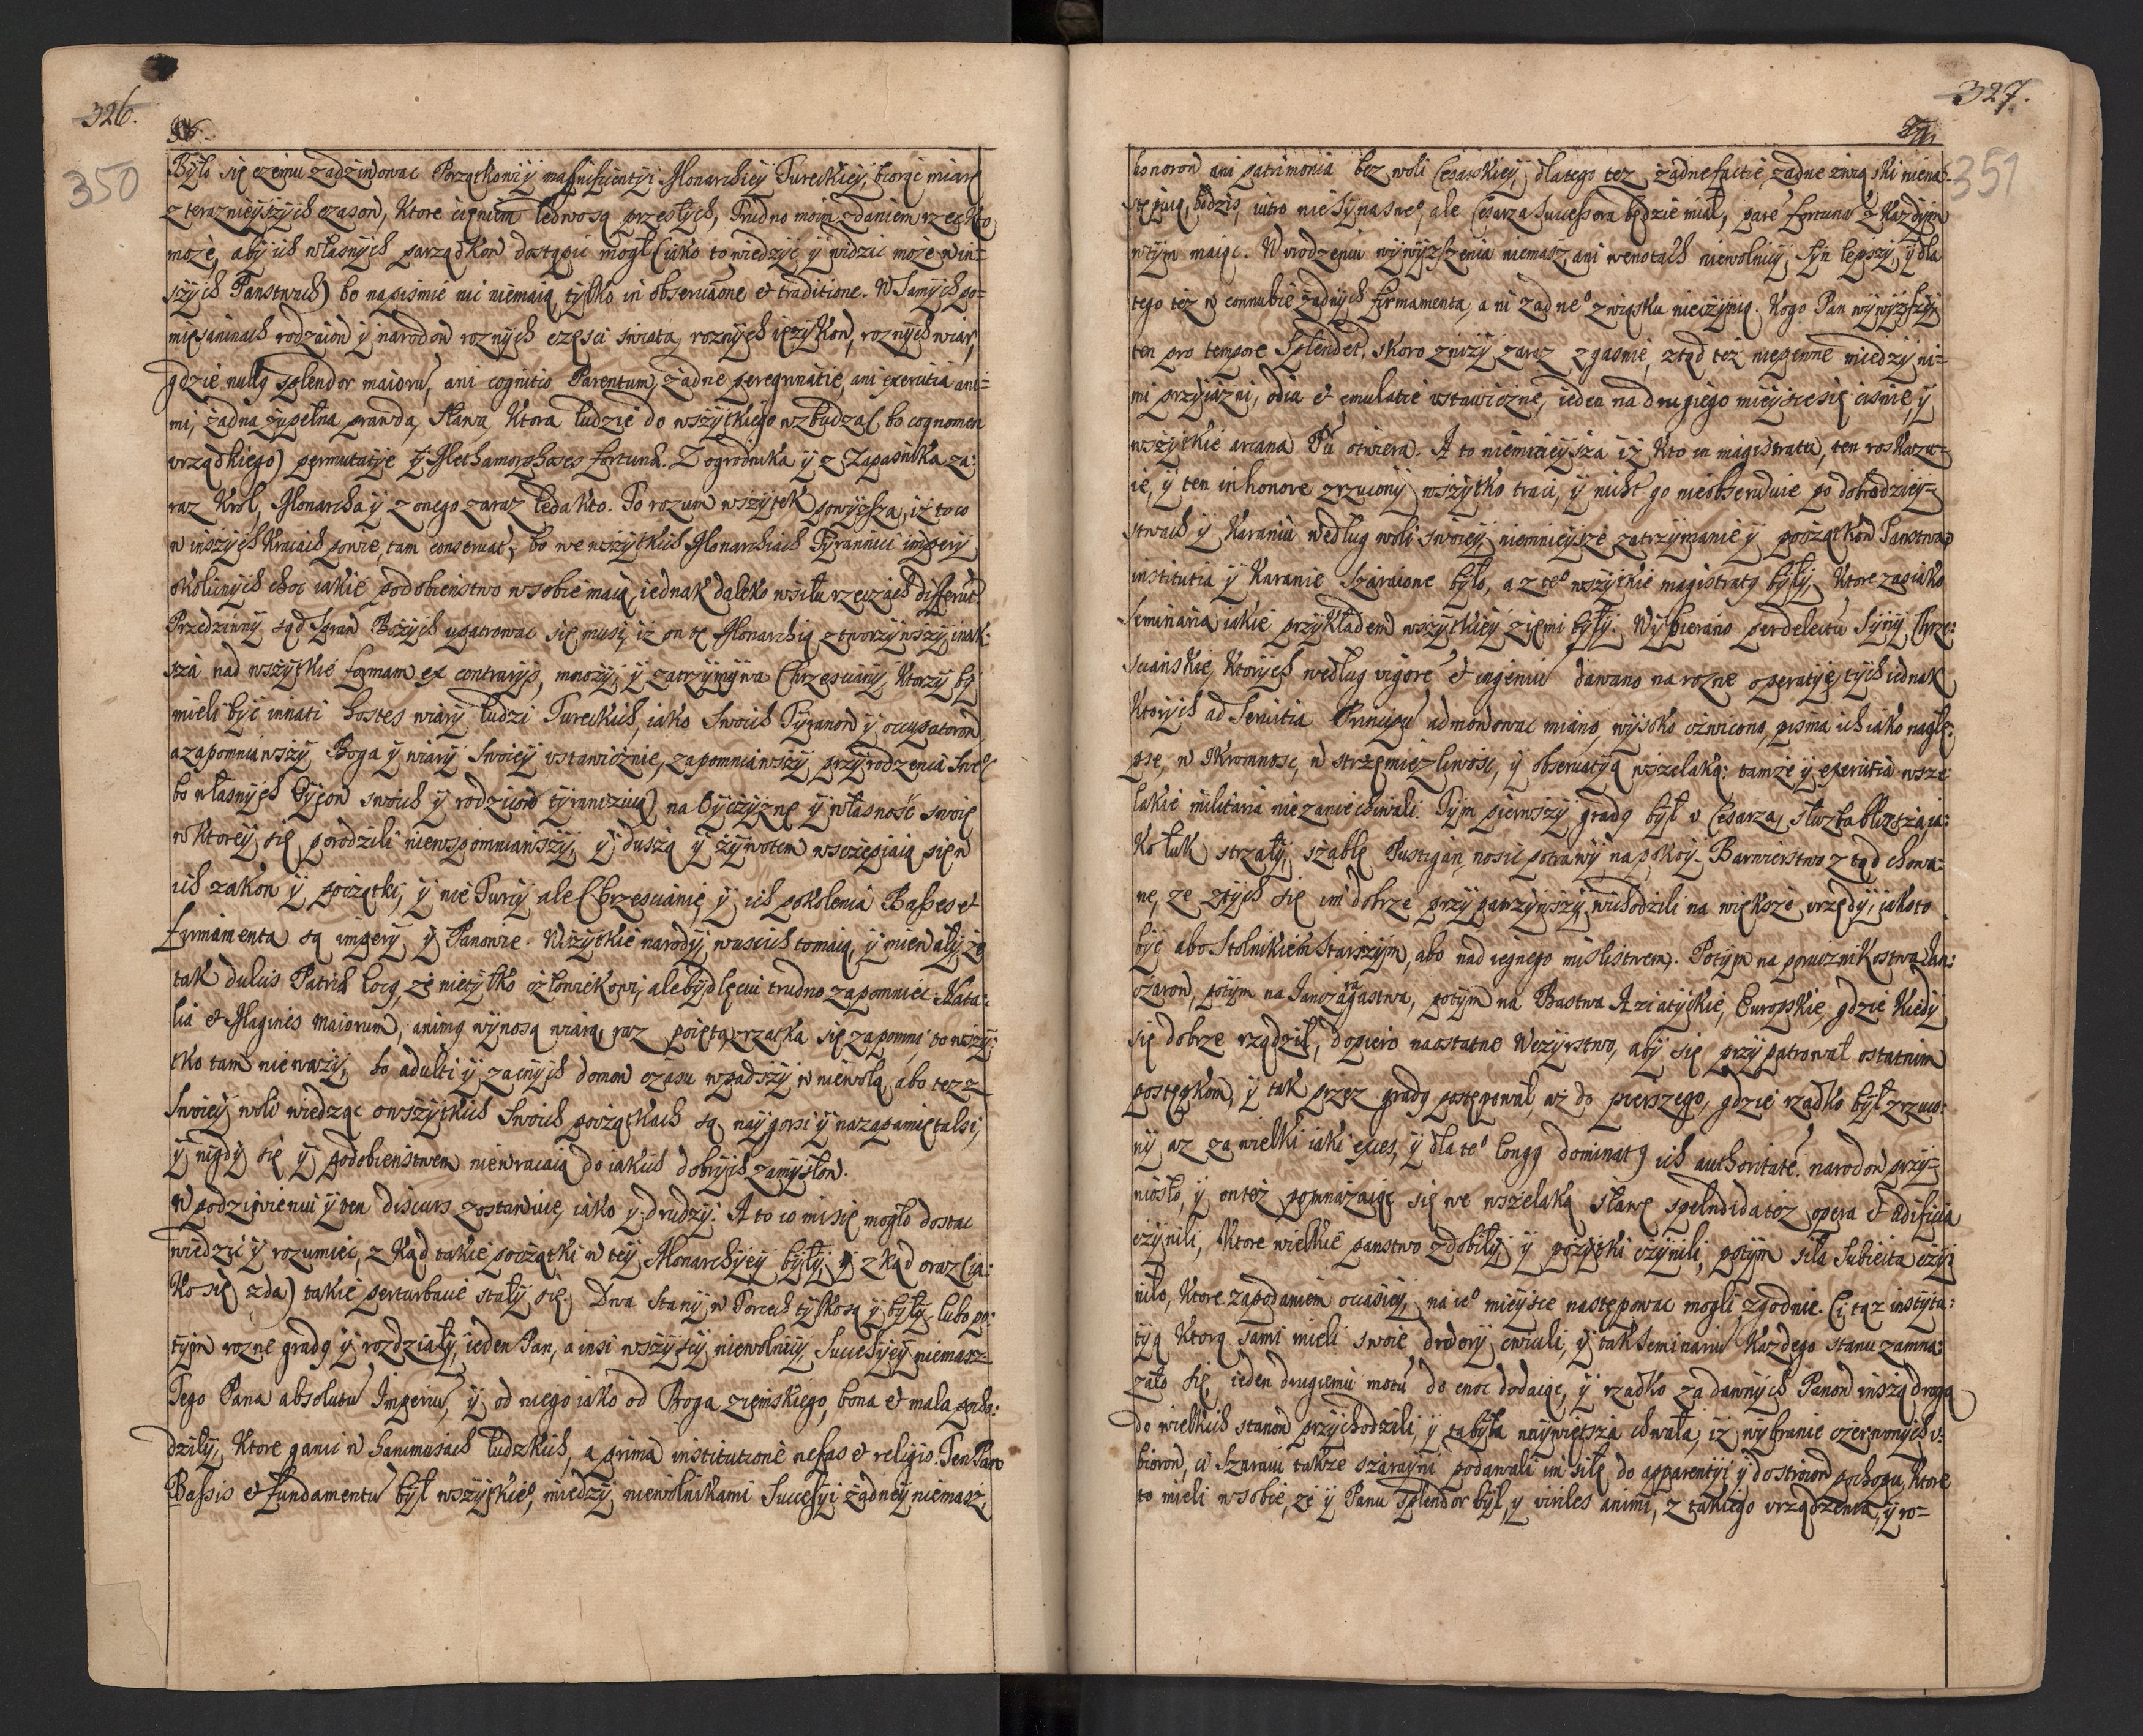 326.
350
Było się czemu zadziwowac Porządkowi y magnificentyi Monarchiey Tureckiey, biorąc miarę
z terazniejszych czasow, ktore cieniem ledwo są przeszłych, Trudno moim zdaniem rzec kto
moze, aby ich własnych parządkow dostąpic mogł (iako to wiedzyć y widzic moze w in=
szych Panstwach) bo napismie nic niemaią tylko in observatione et traditione. W samych po=
mięsaninach rodzaiow y narodow roznych częsci swiata, roznych ięzykow, roznych wiar,
gdzie nullus splendor maiorū, ani cognitio Parentum, żadne peregrinatie, ani exercitia ani=
mi, żadna zupełna prawda, sława, ktora ludzie do wszytkiego wzbudza (bo cognomen
vrządkiego) permutatÿe y Methamorphoses fortunæ. Z ogrodnika y z Zapasnika za:
raz Krol, Monarcha y z onego zaraz leda kto. To rozum wszytek powyzsza, iz to co
w inszych Kraiach psowie, tam conservat; bo we wszytkich Monarchiach Tyrannici imperÿ
okolicznych choc iakie podobienstwo w sobie maią, iednak daleko w siłu rzeczach differūt.
Przedziwny sąd spraw Bozych upatrowac się musi, iz on tę Monarchią ztworzywszy inak:
szą nad wszytkie formam ex contrarÿs, mnozy, y zatrzymywa Chrzescianÿ, ktorzy by
mieli być innati hostes wiary ludzi Tureckich, iako swoich Tyranow y occupatorow
a zapomniawszy Boga y wiary swoiey vstawicznie, zapomniawszy przyrodzenia swe°
bo własnych Oycow swoich y rodzicow tyranizuią) na Oyczyznę y własność swoię
w ktorey się porodzili niewspomniawszy, y duszą y żywotem wsczepiaią się w
ich zakon y początki, y nie Turcy ale Chrzescianie, y ich pokolenia Basses et
firmamenta są imperÿ y Panowie. Wszytkie narody w usciech to maią, y miewały, ze
tak dulcis Patriæ locus, ze nietylko człowiekowi, ale bydlęciu trudno zapomniec. Nata:
lia et Magines maiorum, animą wynosą wiarą, raz poiętą rzadka się zapomni, to wszy:
tko tam niewazy, bo adulti y zacnych domow czasu wpadszy w niewolą, abo tez z
swoiey woli wiedząc o wszytkich swoich początkach są naygorsi y nazapamiętalsi,
y nigdy się y podobienstwem niewracaią do iakich dobrych zamysłow.
W podziwieniu y ten discurs zostawuie, iako y drudzy. A to co mi się mogło dostac
wiedzić y rozumieć, z kąd takie początki w tey Monarchyey były, y z kąd oraz (ia:
ko się zda) takie perturbatie stały się. Dwa Stany w Porcech tylko są y były, lubo po:
tym rozne gradus y rozdziały, ieden Pan, a insi wszyscy niewolnicy, Successyey niemasz
Tego Pana absolutū Imperiū, y od niego iako od Boga ziemskiego, bona et mala pocho:
dziły, ktore ganic w hanimusiach ludzkich, a prima institutione nefas et religio. Ten Pan
Bassis et fundamentū był wszytkie°, między niewolnikami Successyi żadney niemasz,
327.
351
honorow ani patrimonia bez woli Cesarskiey, dlatego tez żadne factie, zadne związki niena:
stępuią, bo dzis, iutro nie syna swe°, ale Cesarza Successora będzie miał, parē fortunā z kazdym
w tym maiąc. W urodzeniu wywyzszenia niemasz, ani w cnotach niewolnicy, syn lepszy, y dla
tego też w connubie żadnych firmamenta, ani żadne° związku nieczynią. Kogo Pan wywyzszy,
ten pro tempore splendet, skoro znizy zaraz zgasnie, ztąd tez niepewne miedzy ni=
mi przyiazni, odia et emulatie vstawiczne, ieden na drugiego mieysce się cisnie, y
wszytkie arcana Pū otwiera. A to niemnieysza iż kto in magistratu, ten roskazu=
ie, y ten in honore zrzucony wszytko traci, y nicht go nieobserwuie po dobrodziey=
stwach y karaniu według woli swoiey, niemnieysze zatrzymanie y początkow Panstwa
institutia y karanie szaraione było, a z te° wszytkie magistraty były, ktore zas iako
seminaria iakie przykładem wszytkiey ziemi były. Wybierano per delectū syny Chrze:
scianskie, ktorych według vigorē et ingeniū dawano na rozne operatye, tych iednak
ktorych ad servitia Principū admowowac miano, wysoko cwiczono, pisma ich iako nagle:
psze, w skromnosc, w strzęmięzliwosc, y observatyą wszelaką: tamze y exercitia wsze
lakie militaria niezaniechiwali. Tym pierwszy gradus był v Cesarza, słuzba blizsza ia:
ko łuk strzały, szablę Pustigan, nosic potrawy na pokoy, Barwierstwo z tąd chowa:
ne, ze z tych się im dobrze przypatrzywszy, wichodzili na większe vrzędy, iako to
być abo Stolnikiem starszym, abo nad iegnego mislistwem. Potym na porucznikostwa Jan:
czarow, potym na Janczaragastwa, potym na Bastwa Aziatyckie, Europskie, gdzie kiedy
się dobrze rządził, dopiero naostatne Wezyrstwo, aby się przypatrował ostatnim
postępkom, y tak przez gradus postępował, aż do pierszego, gdzie rzadko był zrzuco:
ny az za wielki iaki exces, y dla te° longus dominatus ich authoritatē narodow przy=
niosło, y on tez pomnażaiąc się we wszelaką sławę spelndida toż opera et ædificia
czynili, ktore wielkie panstwo zdobiły y pożytki czynili, potym siła subiecta czy:
niło, ktore za podaniem occasiey, na ie° mieysce następowac mogli zgodnie. Ci tąz instytu:
tyą ktorą sami mieli swoie dwory cwiczili, y tak seminariū kazdego stanu zamna:
zało się, ieden drugiemu motū do cnot dodaiąc, y rzadko za dawnych Panow inszą drogą
do wielkich stanow przychodzili, y ta była naywiętsza chwała, iz wybranie czerwonych u:
biorow, ci szaraui takze szarayni podawali im siłę do apparentyi y dostroiow pochopu, ktore
to mieli w sobie, ze y Panu splendor był, y viriles animi, z takiego vrządzenia, y ro=